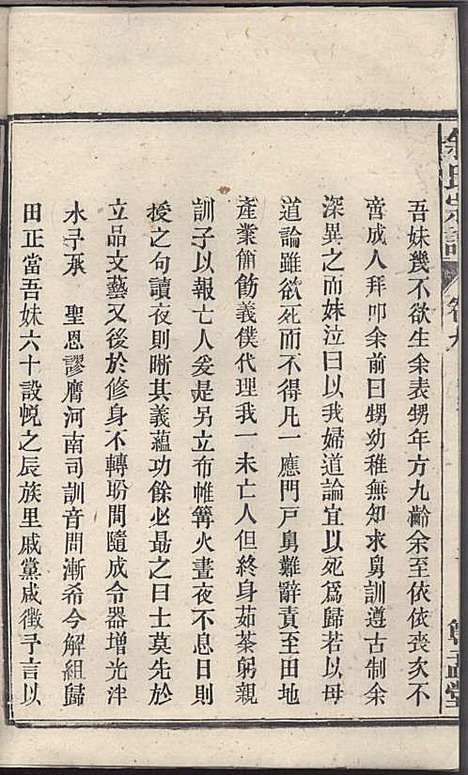 余氏宗譜
卷九
吾妹幾不欲生余表甥年方九齡余至依依喪次不
啻成人拜叩余前曰甥幼稚無知求舅訓遵古制余
深異之而妹泣曰以我婦道論宜以死為歸若以母
道論雖欲死而不得凡一應門戸舅難辭責至田地
產業飭飭義僕代理我一未亡人但終身茹荼躬親
訓子以報亡人爰是另立布帷篝火晝夜不息日則
授之句讀夜則晰其義蘊功餘必勗之曰士莫先於
立品文藝又後於修身不轉盼間隨成令器增光泮
水予承 聖恩謬膺河南司訓音問漸希今解組歸
田正當吾妹六十設帨之辰族里戚黨咸徵予言以